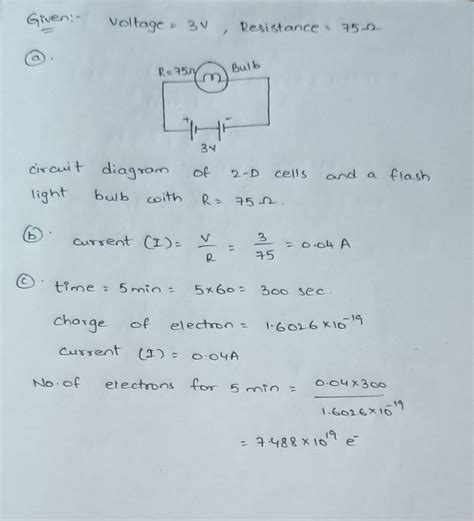 Given:- Voltage = 3V , Resistance = 75Ω
(a).
R=75Ω Bulb
+ -
3V
circuit diagram of 2-D cells and a flash
light bulb with R= 75Ω.
(b). current (I)= V/R = 3/75 = 0.04 A
(c). time = 5min = 5x60= 300 sec.
Charge of electron = 1.6026x10⁻¹⁹
Current (I) = 0.04A
No.of electrons for 5 min = 0.04x300/1.6026x10⁻¹⁹
= 7.488x10¹⁹ e⁻